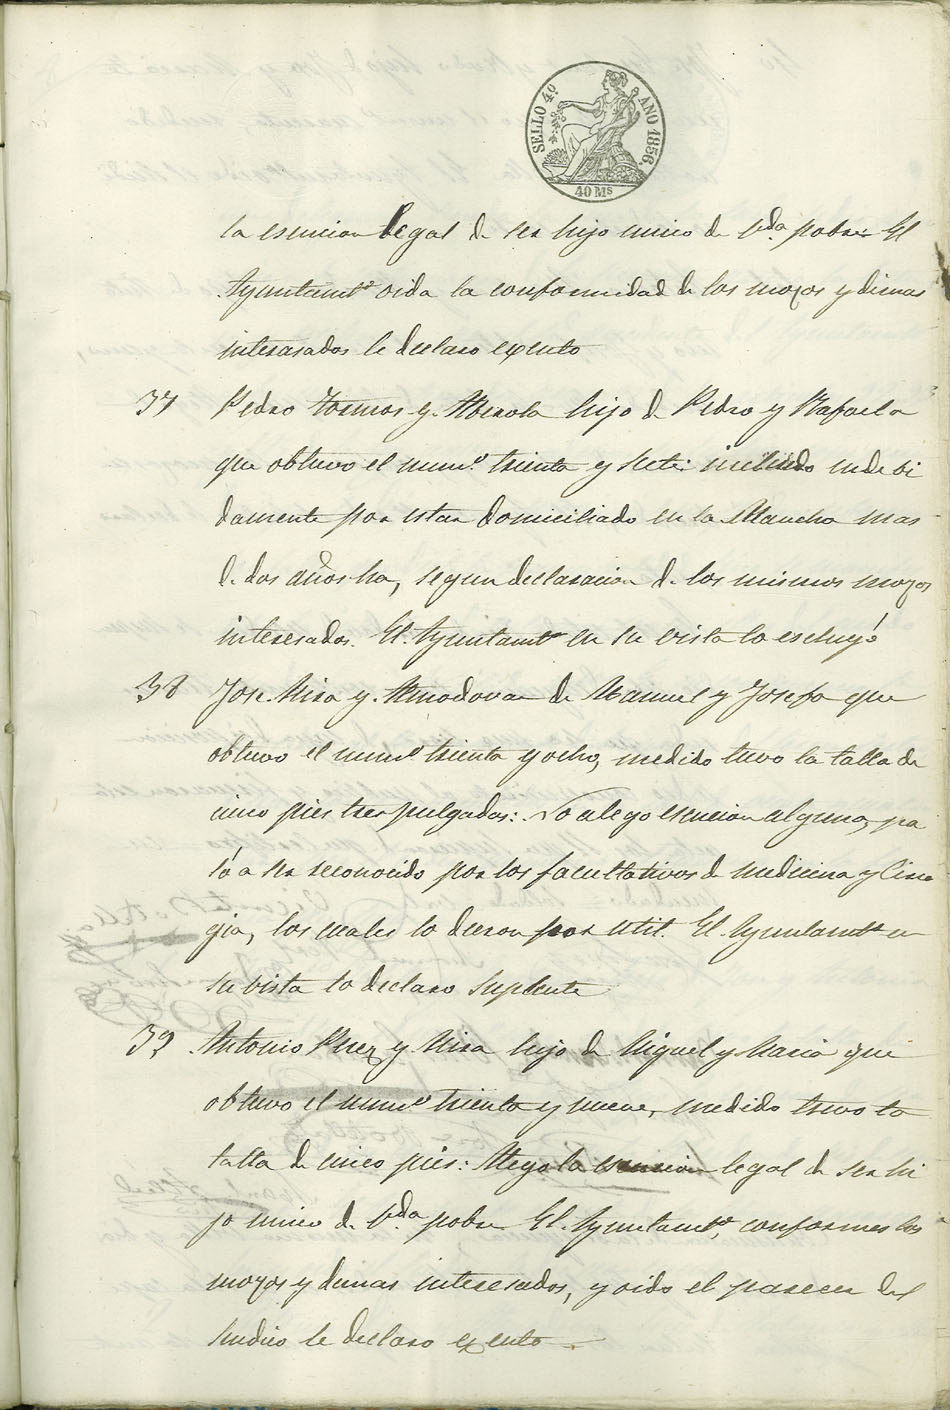 SELLO 4º AÑO 1856.
40 Ms
la esencion legal de ser hijo unico de Vda. pobre El
Ayuntamto oida la conformidad de los mozos y demas
interasados le declaro exento
37 Pedro Tormos y Merola hijo de Pedro y Rafaela
que obtuvo el numo. treinta y siete: incluido indebi
damente por estar domiciliado en la Mancha mas
de dos años ha, segun declaracion de los mismos mozos
interesados. El Ayuntamto en su vista lo escluyó
38 Jose Mira y Almodovar de Manuel y Josefa que
obtuvo el numo treinta y ocho, medido tuvo la talla de
cinco pies tres pulgadas: No alego esencion alguna, pa
só a ser reconocido por los facultativos de medicina y Ciru
gia, los cuales lo dieron por util. El Ayuntamto en
su vista lo declaro suplente
39 Antonio Perez y Mira hijo de Miguel y Maria que
obtuvo el numo treinta y nueve, medido tuvo la
talla de cinco pies: Alego la esencion legal de ser hi
jo unico de Vda pobre El Ayuntamto, conformes los
mozos y demas interesados, y oido el parecer del
Sindico le declaro exento